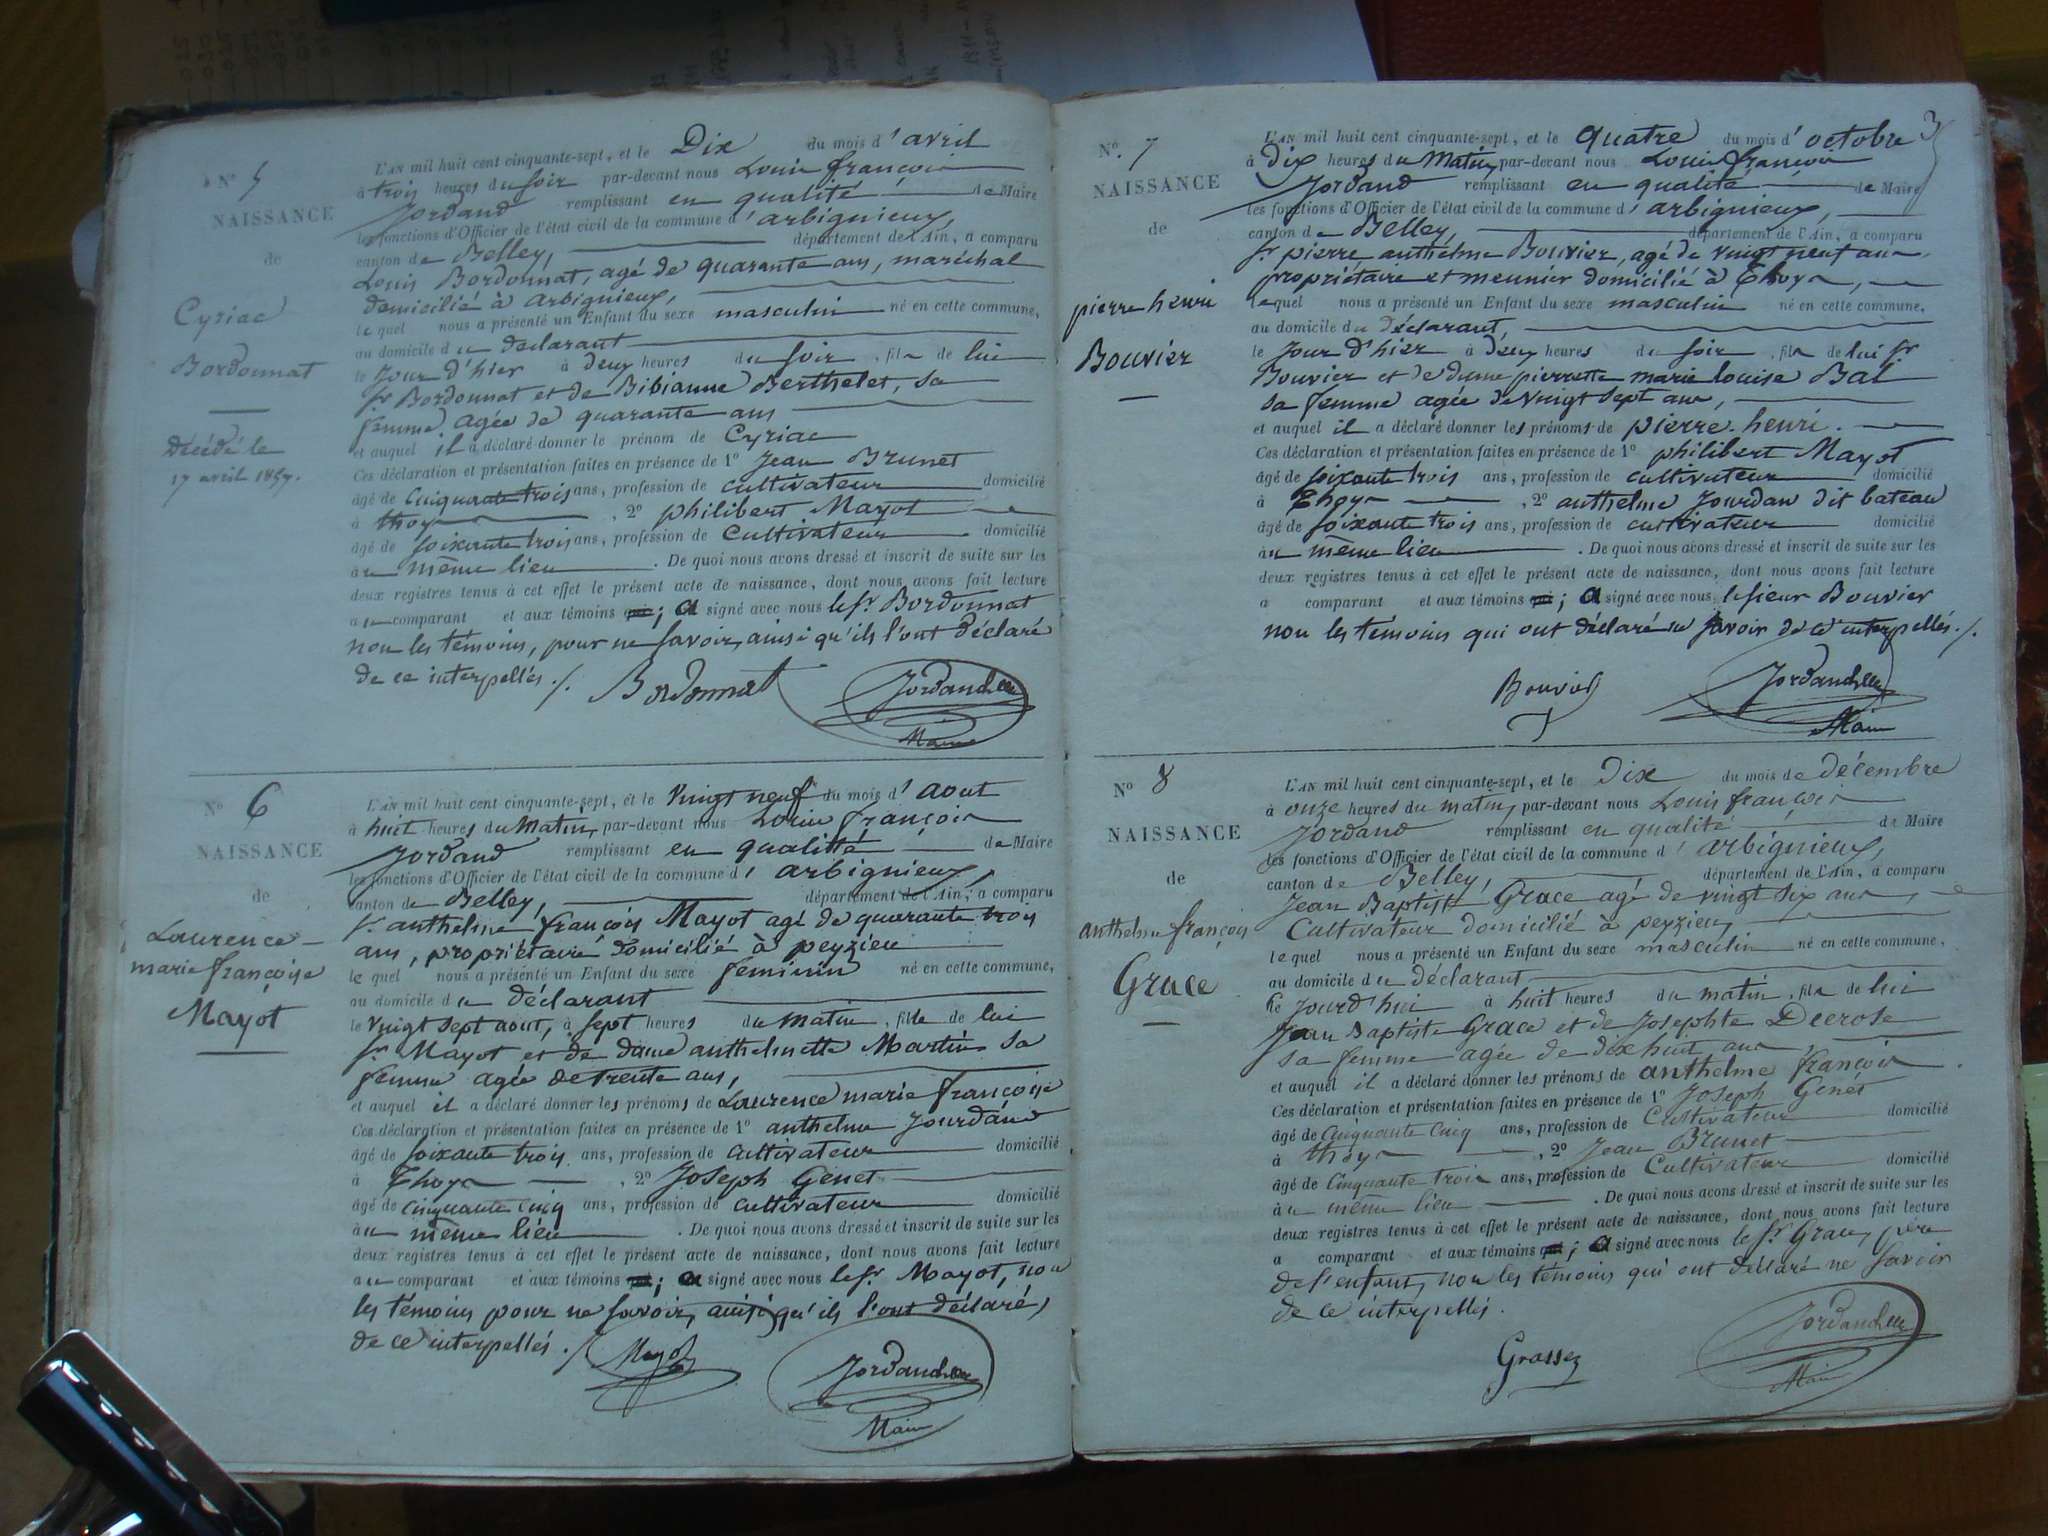 N° 5
NAISSANCE
de
Cyriac
Bordonnat
Décédé le
17 avril 1857.
L'AN mil huit cent cinquante-sept, et le Dix du mois d'avril
à trois heures du soir par-devant nous Louis françois
Jordand remplissant en qualité de Maire
les fonctions d'Officier de l'état civil de la commune d'arbignieux,
canton de Belley, département de l'Ain, a comparu
Louis Bordonnat, agé de quarante ans, maréchal
domicilié à arbignieux,
lequel nous a présenté un Enfant du sexe masculin né en cette commune,
au domicile du déclarant
le Jour d'hier à deux heures du soir, fils de lui
Sr Bordonnat et de Bibianne Berthelet, sa
femme agée de quarante ans
et auquel il a déclaré donner le prénom de Cyriac
Ces déclaration et présentation faites en présence de 1° Jean Brunet
âgé de Cinquante trois ans, profession de cultivateur domicilié
à thoys, 2° philibert Mayot
âgé de soixante trois ans, profession de cultivateur domicilié
au même lieu. De quoi nous avons dressé et inscrit de suite sur les
deux registres tenus à cet effet le présent acte de naissance, dont nous avons fait lecture
au comparant et aux témoins qui; a signé avec nous le Sr Bordonnat
non les témoins, pour ne savoir, ainsi qu'ils l'ont déclaré
de ce interpellés ./.
Bordonnat Jordand
Maire
N° 6
NAISSANCE
de
Laurence
marie françoise
Mayot
L'AN mil huit cent cinquante-sept, et le Vingt neuf du mois d'aout
à huit heures du Matin, par-devant nous Louis françois
Jordand remplissant en qualitté de Maire
les fonctions d'Officier de l'état civil de la commune d'arbignieux,
canton de Belley, département de l'Ain, a comparu
Sr anthelme françois Mayot agé de quarante trois
ans, propriétaire domicilié à peyzieu
lequel nous a présenté un Enfant du sexe feminin né en cette commune,
au domicile du déclarant
le vingt sept aout, à sept heures du matin, fille de lui
Sr Mayot et de dame anthelmette Martin sa
femme agée de trente ans,
et auquel il a déclaré donner les prénoms de Laurence marie françoise
Ces déclaration et présentation faites en présence de 1° anthelme Jourdand
âgé de soixante trois ans, profession de cultivateur domicilié
à Thoys, 2° Joseph Genet
âgé de cinquante cinq ans, profession de cultivateur domicilié
au même lieu. De quoi nous avons dressé et inscrit de suite sur les
deux registres tenus à cet effet le présent acte de naissance, dont nous avons fait lecture
au comparant et aux témoins qui; a signé avec nous le Sr Mayot, non
les témoins pour ne savoir, ainsi qu'ils l'ont déclaré,
de ce interpellés ./.
Mayot Jordand
Maire
3
N°. 7
NAISSANCE
de
pierre henri
Bouvier
L'AN mil huit cent cinquante-sept, et le quatre du mois d'octobre
à Dix heures du Matin, par-devant nous Louis françois
Jordand remplissant en qualité de Maire
les fonctions d'Officier de l'état civil de la commune d'arbignieux,
canton de Belley, département de l'Ain, a comparu
Sr pierre anthelme Bouvier, agé de vingt neuf ans
propriétaire et meunier domicilié à Thoys,
lequel nous a présenté un Enfant du sexe masculin né en cette commune,
au domicile du déclarant,
le Jour d'hier à deux heures du soir, fils de lui Sr
Bouvier et de dame pierrette marie louise Bal
sa femme agée de vingt sept ans,
et auquel il a déclaré donner les prénoms de pierre henri.
Ces déclaration et présentation faites en présence de 1° philibert Mayot
âgé de soixante trois ans, profession de cultivateur domicilié
à Thoys, 2° anthelme Jourdan dit bateau
âgé de soixante trois ans, profession de cultivateur domicilié
au même lieu. De quoi nous avons dressé et inscrit de suite sur les
deux registres tenus à cet effet le présent acte de naissance, dont nous avons fait lecture
a comparant et aux témoins qui; a signé avec nous le sieur Bouvier
non les témoins qui ont déclaré ne savoir de ce interpellés ./.
Bouvier Jordand
Maire
N° 8
NAISSANCE
de
anthelme françois
Grace
L'AN mil huit cent cinquante-sept, et le Dix du mois de décembre
à onze heures du matin, par-devant nous Louis françois
Jordand remplissant en qualité de Maire
les fonctions d'Officier de l'état civil de la commune d'arbignieux,
canton de Belley, département de l'Ain, a comparu
Jean Baptiste Grace agé de vingt six ans,
Cultivateur domicilié à peyzieu,
lequel nous a présenté un Enfant du sexe masculin né en cette commune,
au domicile du déclarant
le Jourd'hui à huit heures du matin, fils de lui
Jean Baptiste Grace et de Josephte Decrose
sa femme agée de dix huit ans,
et auquel il a déclaré donner les prénoms de anthelme françois
Ces déclaration et présentation faites en présence de 1° Joseph Genet
âgé de cinquante cinq ans, profession de Cultivateur domicilié
à thoys, 2° Jean Brunet
âgé de cinquante trois ans, profession de Cultivateur domicilié
au même lieu. De quoi nous avons dressé et inscrit de suite sur les
deux registres tenus à cet effet le présent acte de naissance, dont nous avons fait lecture
a comparant et aux témoins qui; a signé avec nous le Sr Grace, père
de l'enfant, non les témoins qui ont déclaré ne savoir
de ce interpellés.
Grassez Jordand
Maire